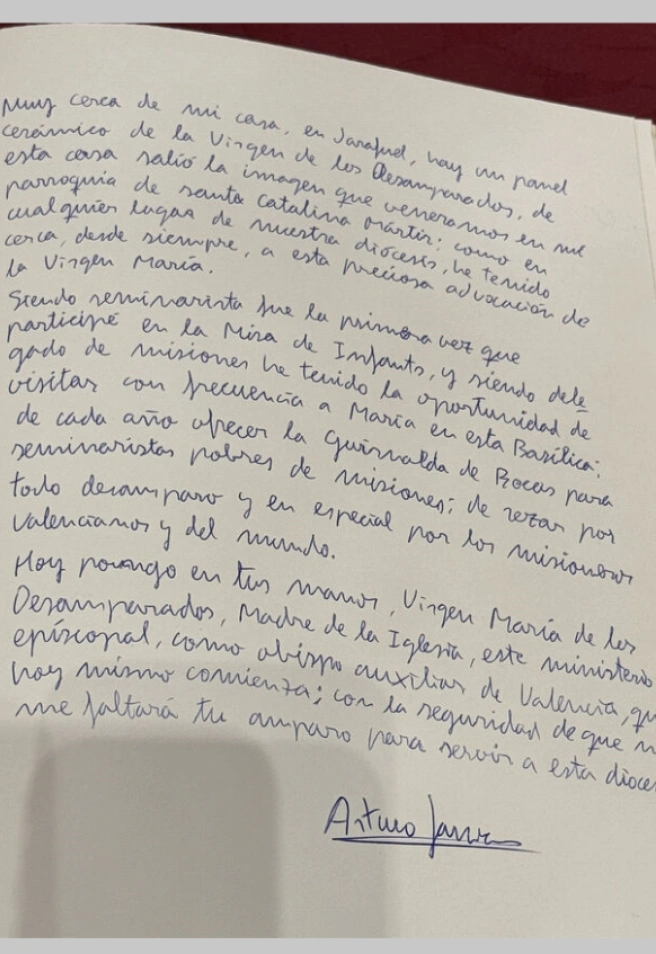 Muy cerca de mi casa, en Jarafuel, hay un panel
cerámico de la Virgen de los Desamparados, de
esta casa salió la imagen que veneramos en mi
parroquia de santa Catalina mártir: como en
cualquier lugar de nuestra diócesis, he tenido
cerca, desde siempre, a esta preciosa advocación de
la Virgen María.
Siendo seminarista fue la primera vez que
participé en la Misa de Infants, y siendo dele
gado de misiones he tenido la oportunidad de
visitar con frecuencia a María en esta Basílica:
de cada año ofrecer la Guirnalda de Becas para
seminaristas pobres de misiones; de rezar por
todo desamparo y en especial por los misioneros
valencianos y del mundo.
Hoy pongo en tus manos, Virgen María de los
Desamparados, Madre de la Iglesia, este ministerio
episcopal, como obispo auxiliar de Valencia, qu
hoy mismo comienza; con la seguridad de que n
me faltará tu amparo para servir a esta dioce
Arturo